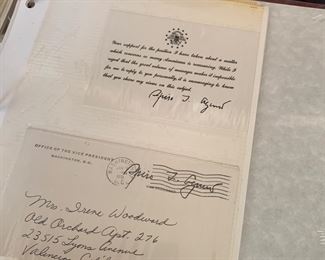 Your support for the position I have taken about a matter
which concerns so many Americans is reassuring. While I
regret that the great volume of messages makes it impossible
for me to reply to you personally, it is encouraging to know
that you share my views on this subject.
Spiro T. Agnew
OFFICE OF THE VICE PRESIDENT
WASHINGTON, D.C.
Spiro T. Agnew
Mrs. Irene Woodward
Old Orchard Apt. 276
23515 Lyons Avenue
Valencia